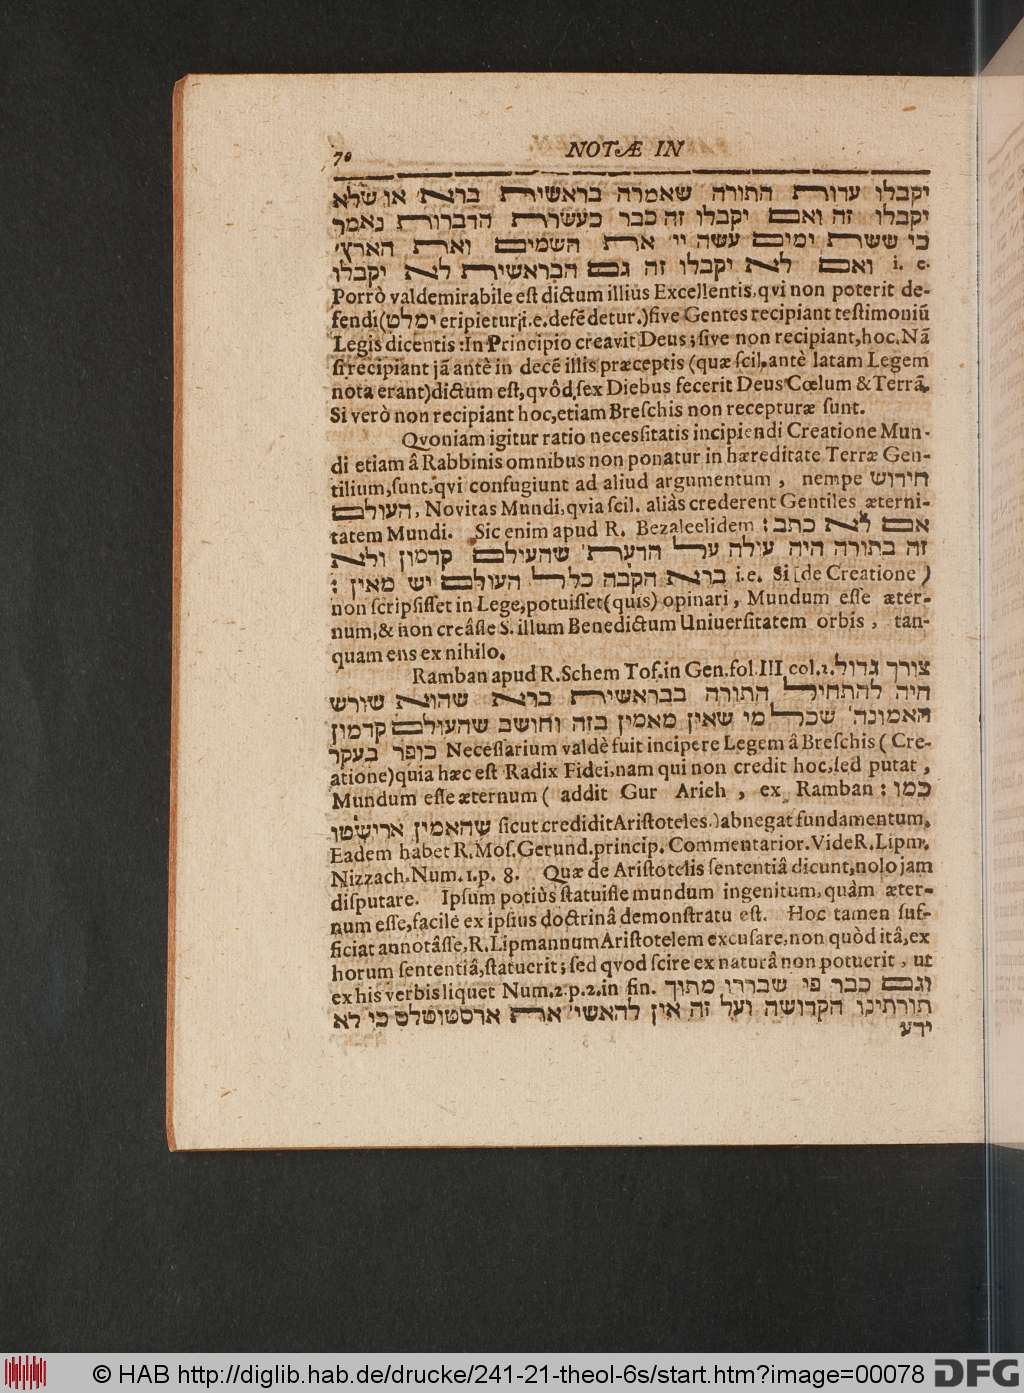 70 NOTÆ IN
יקבלו עדות התורה שאמרה בראשית ברא או שלא
יקבלו זה ואם יקבלו זה כבר כעשרת הדברות נאמר
כי ששת ימים עשה יי׳ את השמים ואת הארץ׳
ואם לא יקבלו זה גם הבראשית לא יקבלו i. e.
Porrò valdemirabile eſt dictum illius Excellentis, qvi non poterit de-
fendi (ימלט eripietur, i. e. defẽdetur.) ſive Gentes recipiant teſtimoniũ
Legis dicentis: In Principio creavit Deus; ſive non recipiant, hoc. Nã
ſi recipiant jã antè in decẽ illis præceptis (quæ ſcil. antè latam Legem
nota erant) dictum eſt, qvôd ſex Diebus fecerit Deus Cœlum & Terrã.
Si verò non recipiant hoc, etiam Breſchis non recepturæ ſunt.
Qvoniam igitur ratio necesſitatis incipiendi Creatione Mun-
di etiam â Rabbinis omnibus non ponatur in hæreditate Terræ Gen-
tilium, ſunt, qvi confugiunt ad aliud argumentum, nempe חידוש
העולם, Novitas Mundi, qvia ſcil. aliàs crederent Gentiles æterni-
tatem Mundi. Sic enim apud R. Bezaleelidem: אם לא כתב
זה בתורה היה עילה על הדעת׳ שהעולם קדמון ולא
ברא הקבה כלל העולם יש מאין: i. e. Si [de Creatione)
non ſcripſiſſet in Lege, potuiſſet (quis) opinari, Mundum eſſe æter-
num, & non creâſſe S. illum Benedictum Univerſitatem orbis, tan-
quam ens ex nihilo.
Ramban apud R. Schem Tof. in Gen. fol. III col. 2. צורך גדול
היה להתחיל התורה בבראשית ברא שהוא שורש
האמונה׳ שכל מי שאין מאמין בזה וחושב שהעולם קדמון
כופר בעקר Neceſſarium valdè fuit incipere Legem â Breſchis (Cre-
atione) quia hæc eſt Radix Fidei, nam qui non credit hoc, ſed putat,
Mundum eſſe æternum ( addit Gur Arieh, ex Ramban: כמו
שהאמין ארישטו ſicut credidit Ariſtoteles.) abnegat fundamentum.
Eadem habet R. Moſ. Gerund. princip. Commentarior. Vide R. Lipm.
Nizzach. Num. 1. p. 8. Quæ de Ariſtotelis ſententiâ dicunt, nolo jam
diſputare. Ipſum potiùs ſtatuiſſe mundum ingenitum, quàm æter-
num eſſe, facile ex ipſius doctrinâ demonſtratu eſt. Hoc tamen ſuf-
ficiat annotâſſe, R. Lipmannum Ariſtotelem excuſare, non quòd itâ, ex
horum ſententiâ, ſtatuerit; ſed qvod ſcire ex naturâ non potuerit, ut
ex his verbis liquet Num. 2. p. 2. in fin. וגם כבר פי שבררו מתוך
תורתינו הקדושה ועל זה אין להאשי׳ את ארסטוטלס כי לא
ידע
© HAB http://diglib.hab.de/drucke/241-21-theol-6s/start.htm?image=00078 DFG